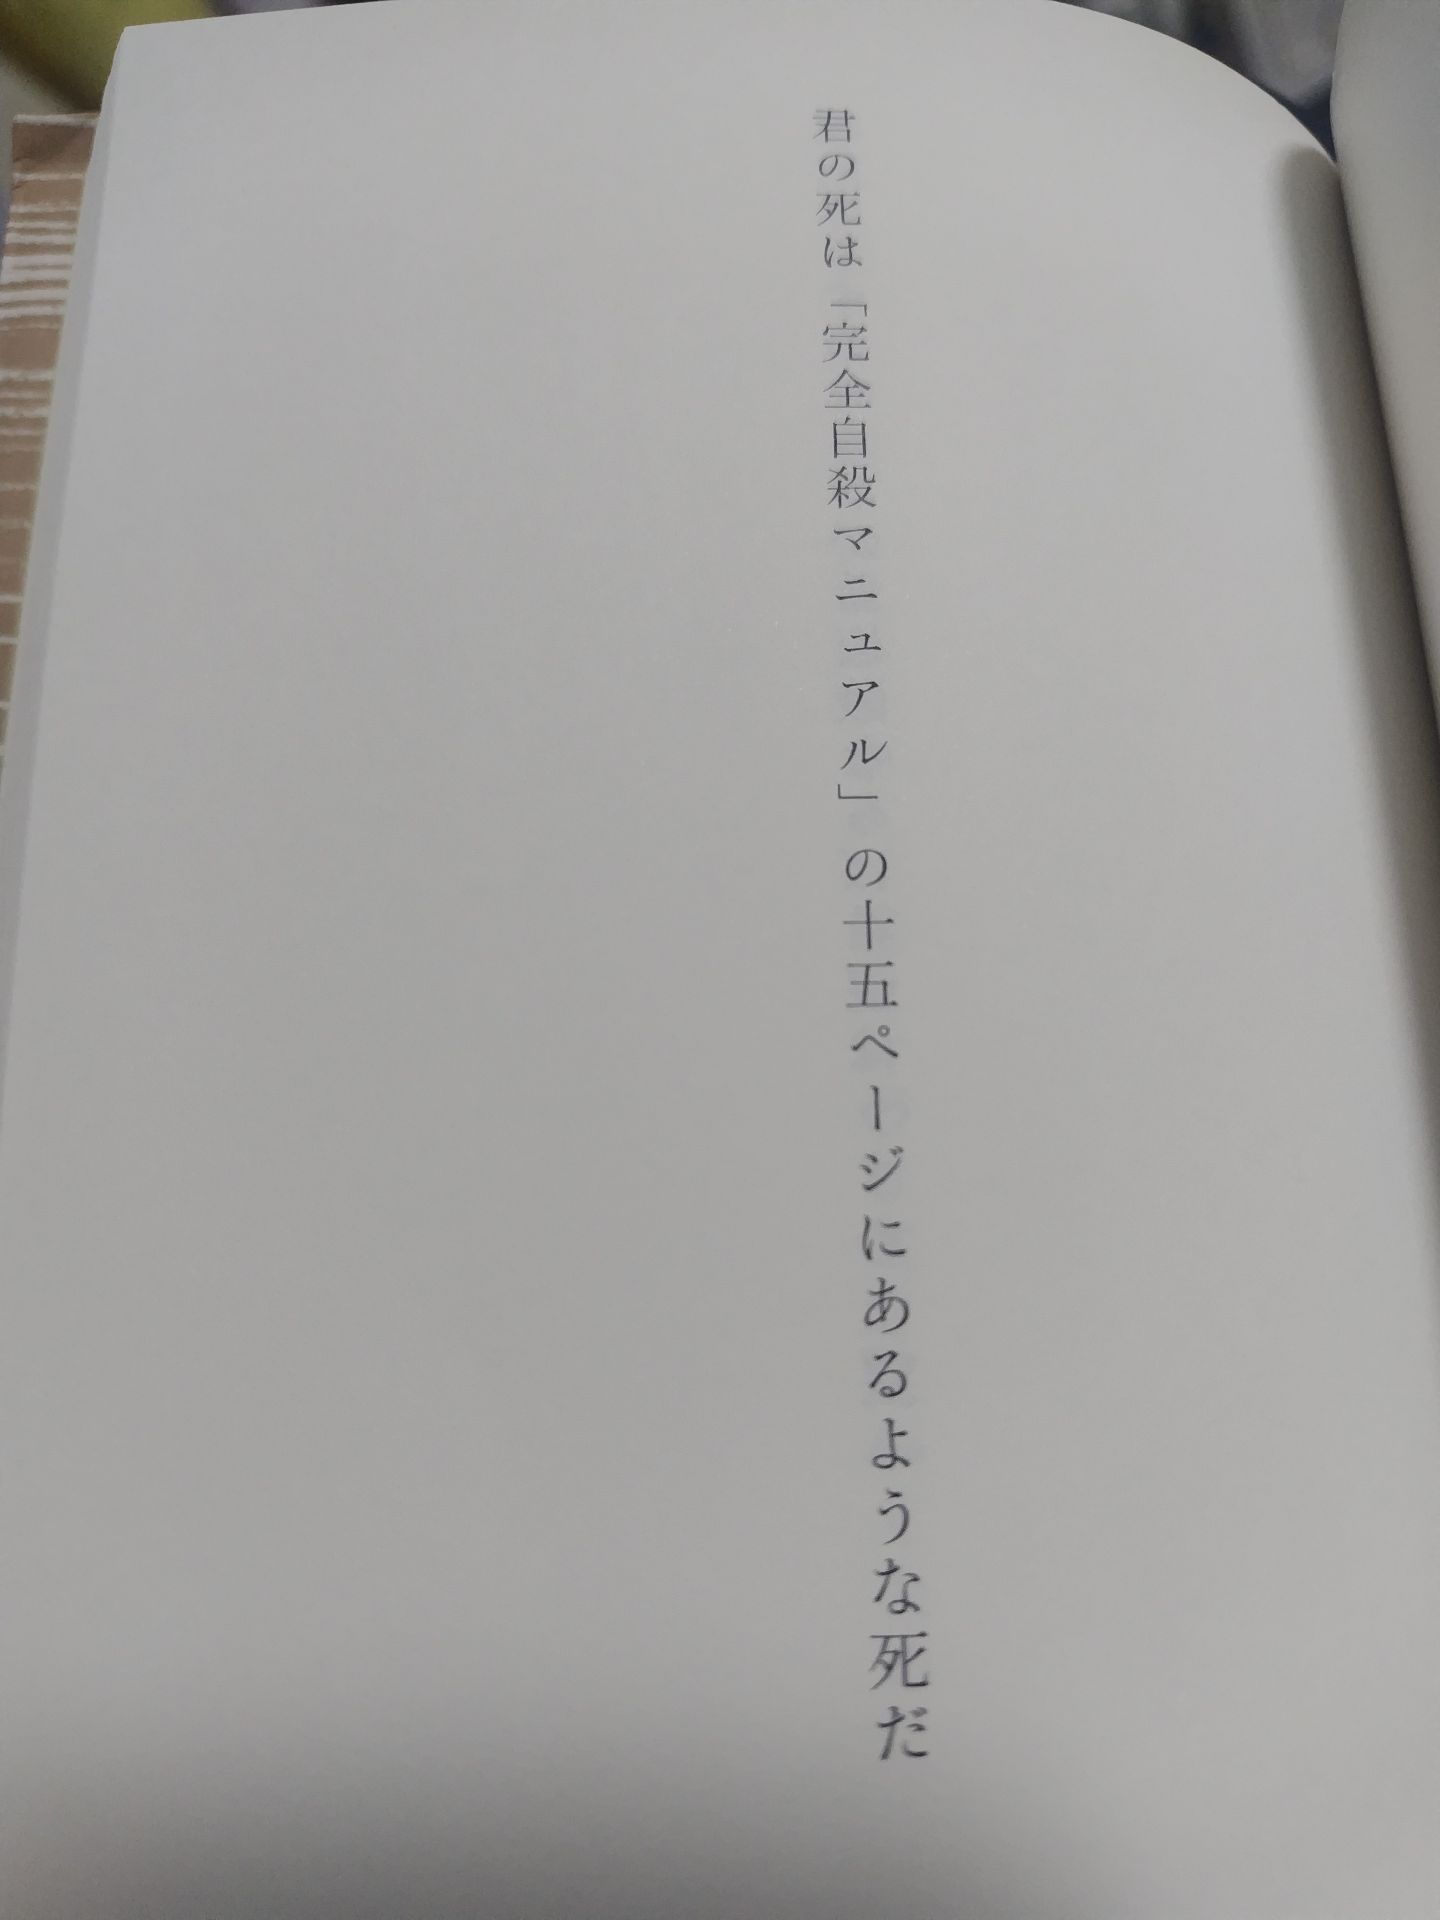 君の死は「完全自殺マニュアル」の十五ページにあるような死だ